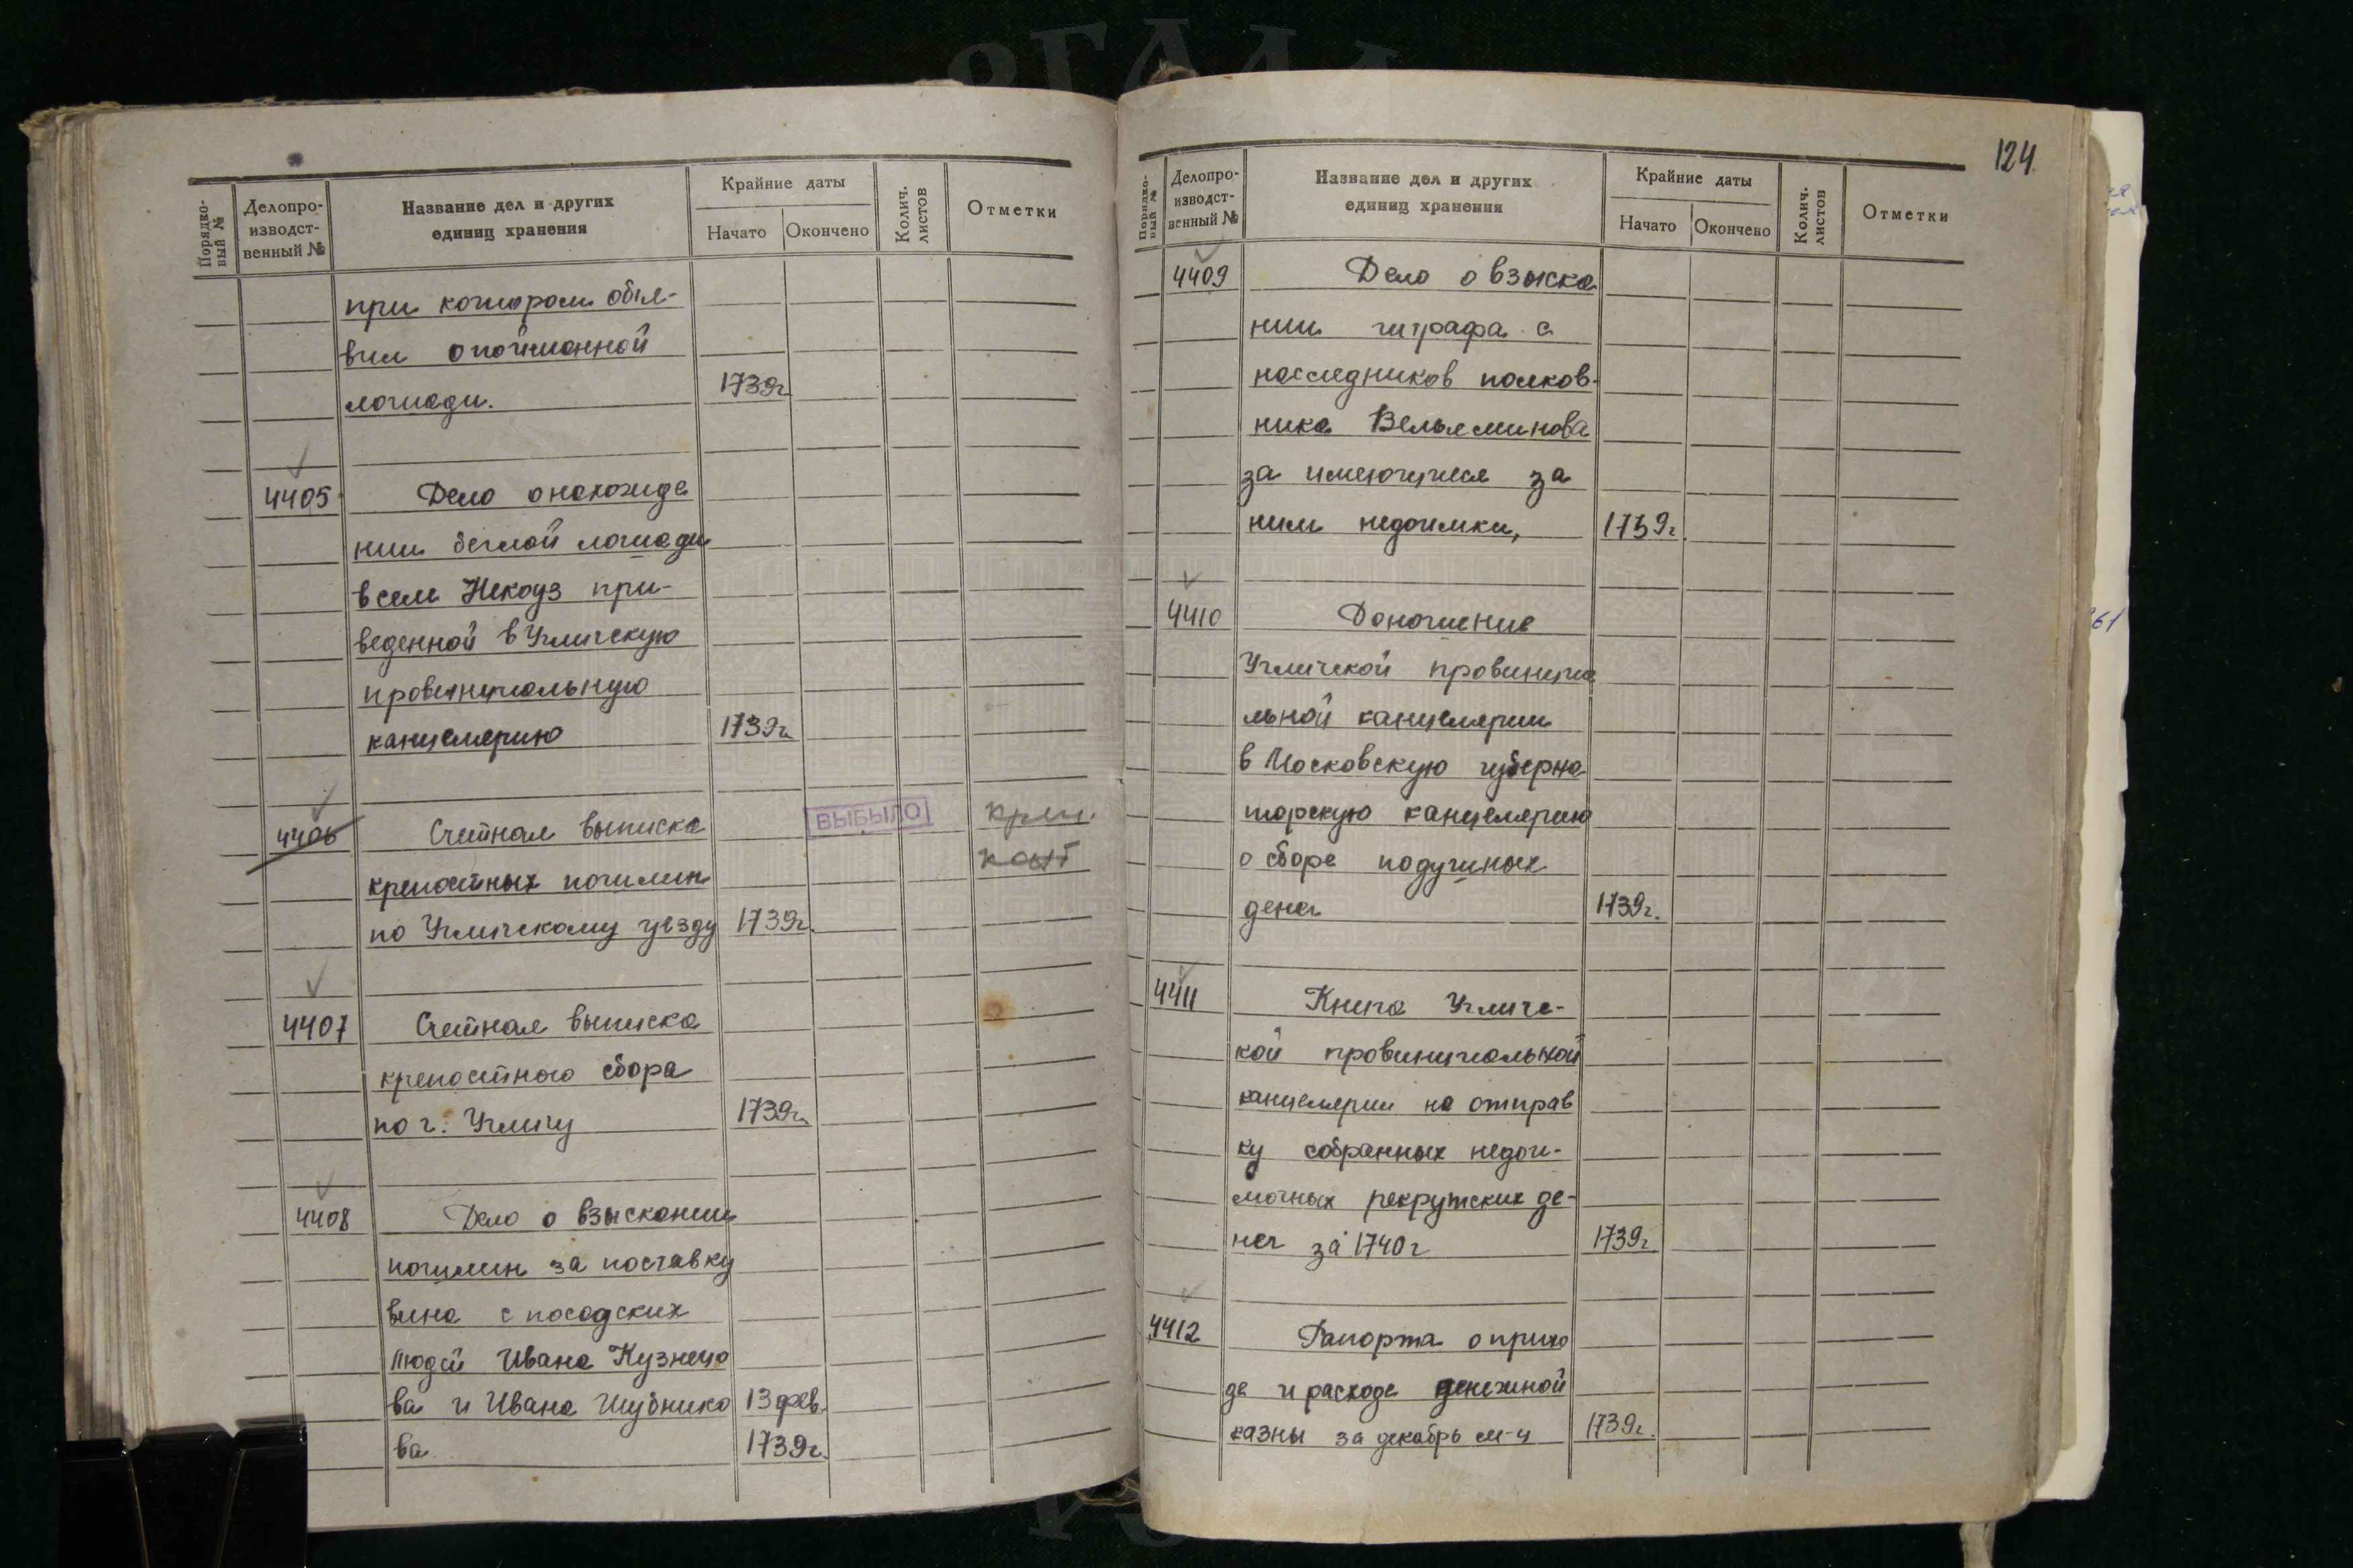 РГАДА
Порядко-
вый №
Делопро-
изводст-
венный №
Название дел и других
единиц хранения
Крайние даты
Начато
Окончено
Колич.
листов
Отметки
при котором объя-
вил о пойманной
лошади. 1739г
4405 Дело о нахожде
нии беглой лошади
в селе Некоуз при-
веденной в Угличскую
провинциальную
канцелярию 1739г.
4406 Счетная выписка ВЫБЫЛО
крепостных пошлин
по Угличскому уезду 1739г.
4407 Счетная выписка
крепостного сбора
по г. Угличу 1739г.
4408 Дело о взыскании
пошлин за поставку
вина с посадских
людей Ивана Кузнецо
ва и Ивана Шубнико 13 фев.
ва 1739г.
124
Порядко-
вый №
Делопро-
изводст-
венный №
Название дел и других
единиц хранения
Крайние даты
Начато
Окончено
Колич.
листов
Отметки
4409 Дело о взыска
нии штрафа с
наследников полков-
ника Вельяминова
за имеющиеся за
ним недоимки, 1739г.
4410 Доношение
Угличской провинциа
льной канцелярии
в Московскую губерна
торскую канцелярию
о сборе подушных
денег 1739г.
4411 Книга Угличс-
кой провинциальной
канцелярии на отправ
ку собранных недои-
мочных рекрутских де-
нег за 1740г 1739г
4412 Рапорта о прихо
де и расходе денежной
казны за декабрь м-ц 1739г.
61